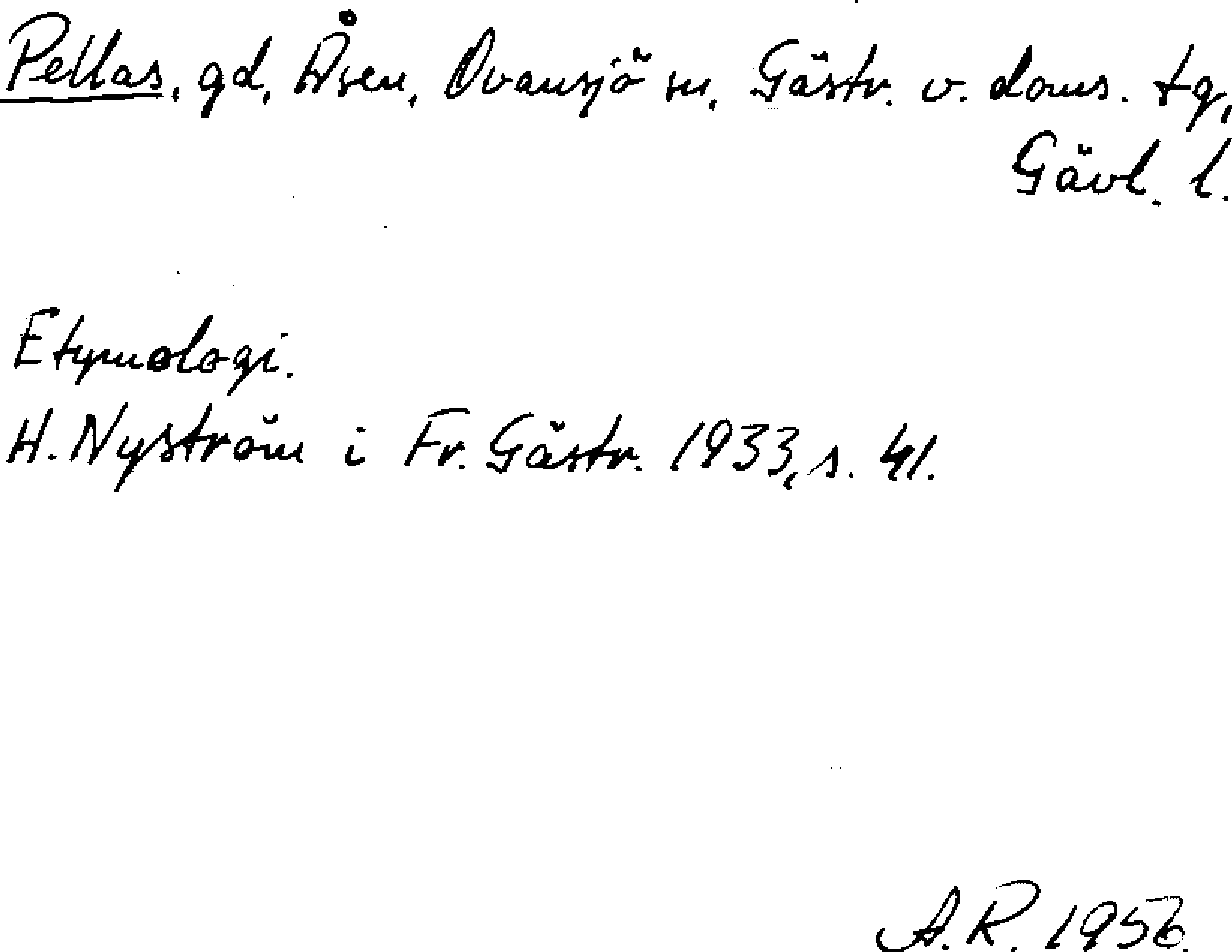 Pellas, gd, Åsen, Ovansjö sn, Gästr. v. doms. tg,
Gävl. l.
Etymologi.
H. Nyström i Fr. Gästr. 1933, s. 41.
A.R. 1956.